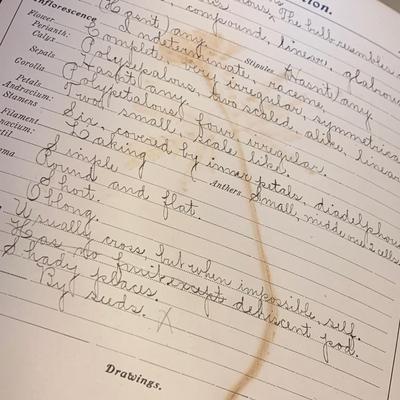 The bulb resembles
compound, linear, glabrous
Inflorescence (H gent) any. Stipules (Hasnt) any.
Flower Indeterminate, raceme.
Perianth: Complete, very irregular, symmetrical
Calyx
Sepals Polysepalous, two scaled, alike, linear
Corolla (Hasnt) any.
Petals Polypetalous, four irregular.
Andrœcium: Two small, scale like.
Stamens Six, covered by inner petals, diadelphous
Filament Anthers Small, middle one 2 cells.
Simple
Round and flat.
Short.
Oblong.
Usually cross, but when impossible, self.
Has no fruit except dehiscent pod.
Shady places.
By seeds. X
Drawings.